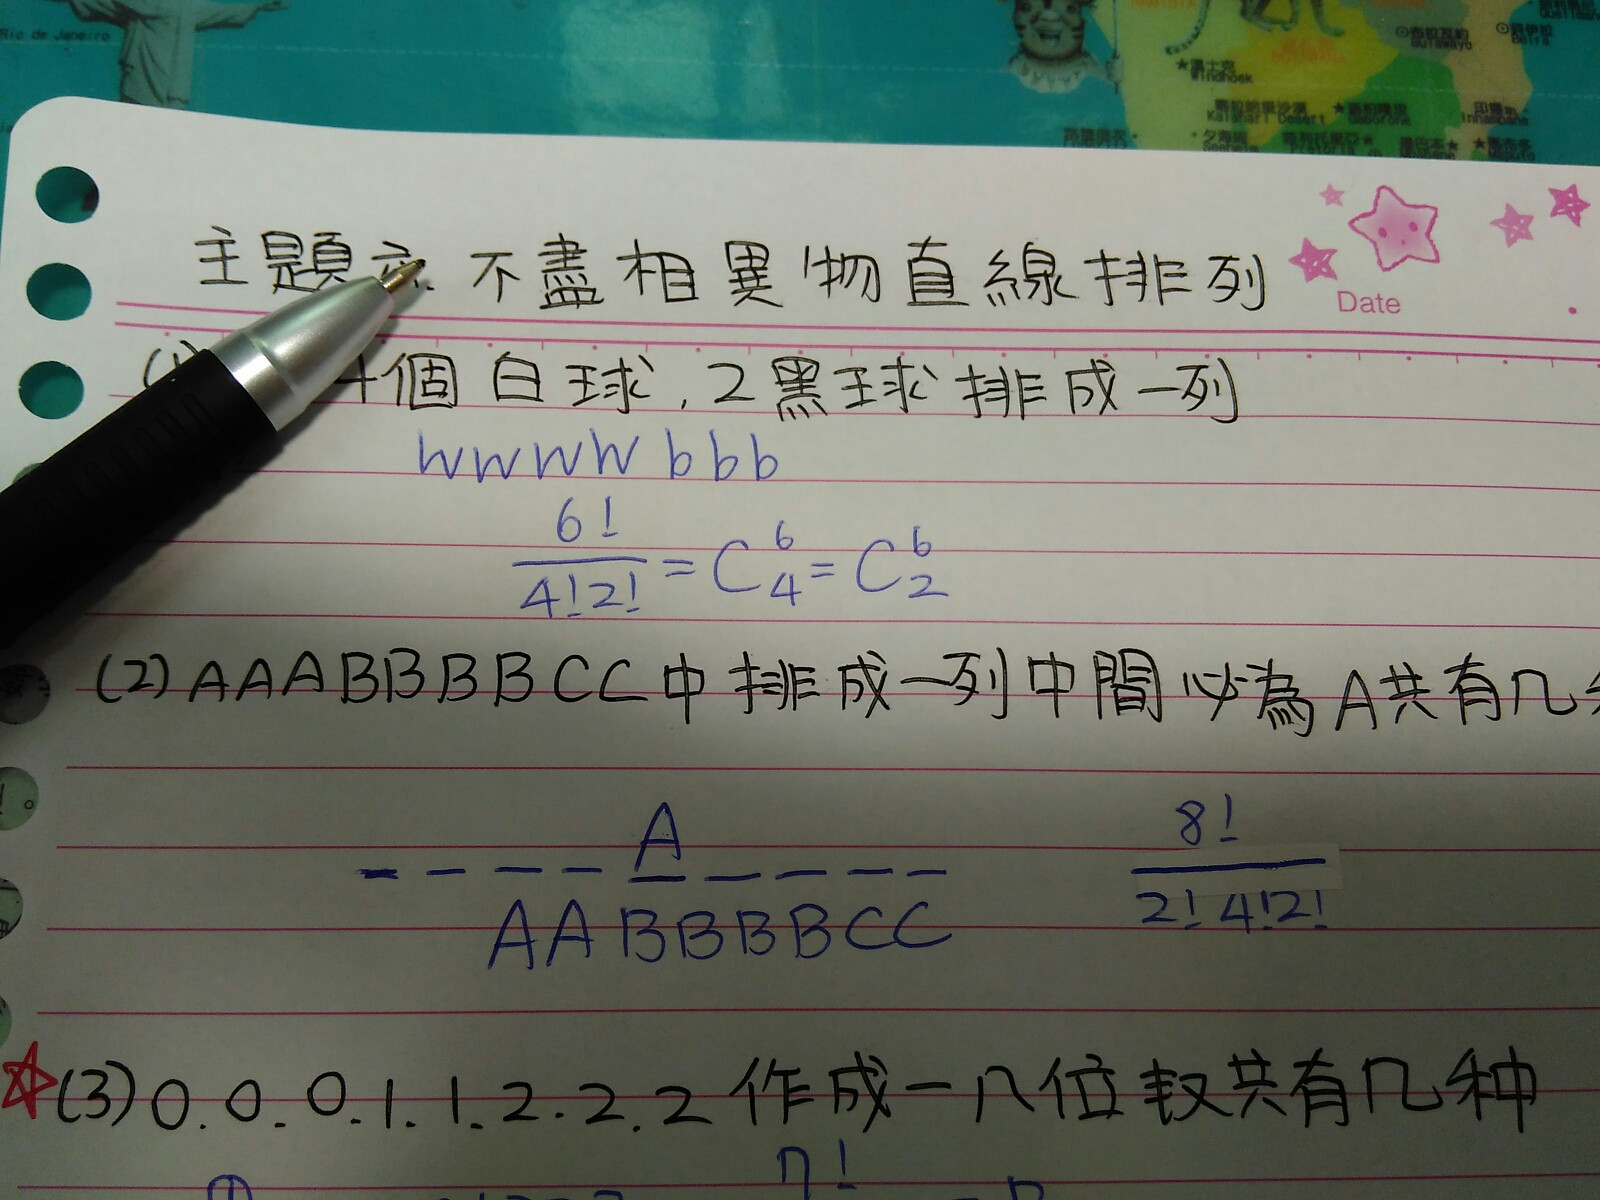 Rio de Janeiro
Windhoek
Kalahari Desert
主題 不盡相異物直線排列
Date
4個白球.2黑球排成一列
WWWW bbb
6!
4!2! = C 6 4 = C 6 2
(2) AAABBBBCC中排成一列中間必為A共有几
A
AABBBBCC
8!
2!4!2!
(3) 0.0.0.1.1.2.2.2作成一八位数共有几种
7!
①